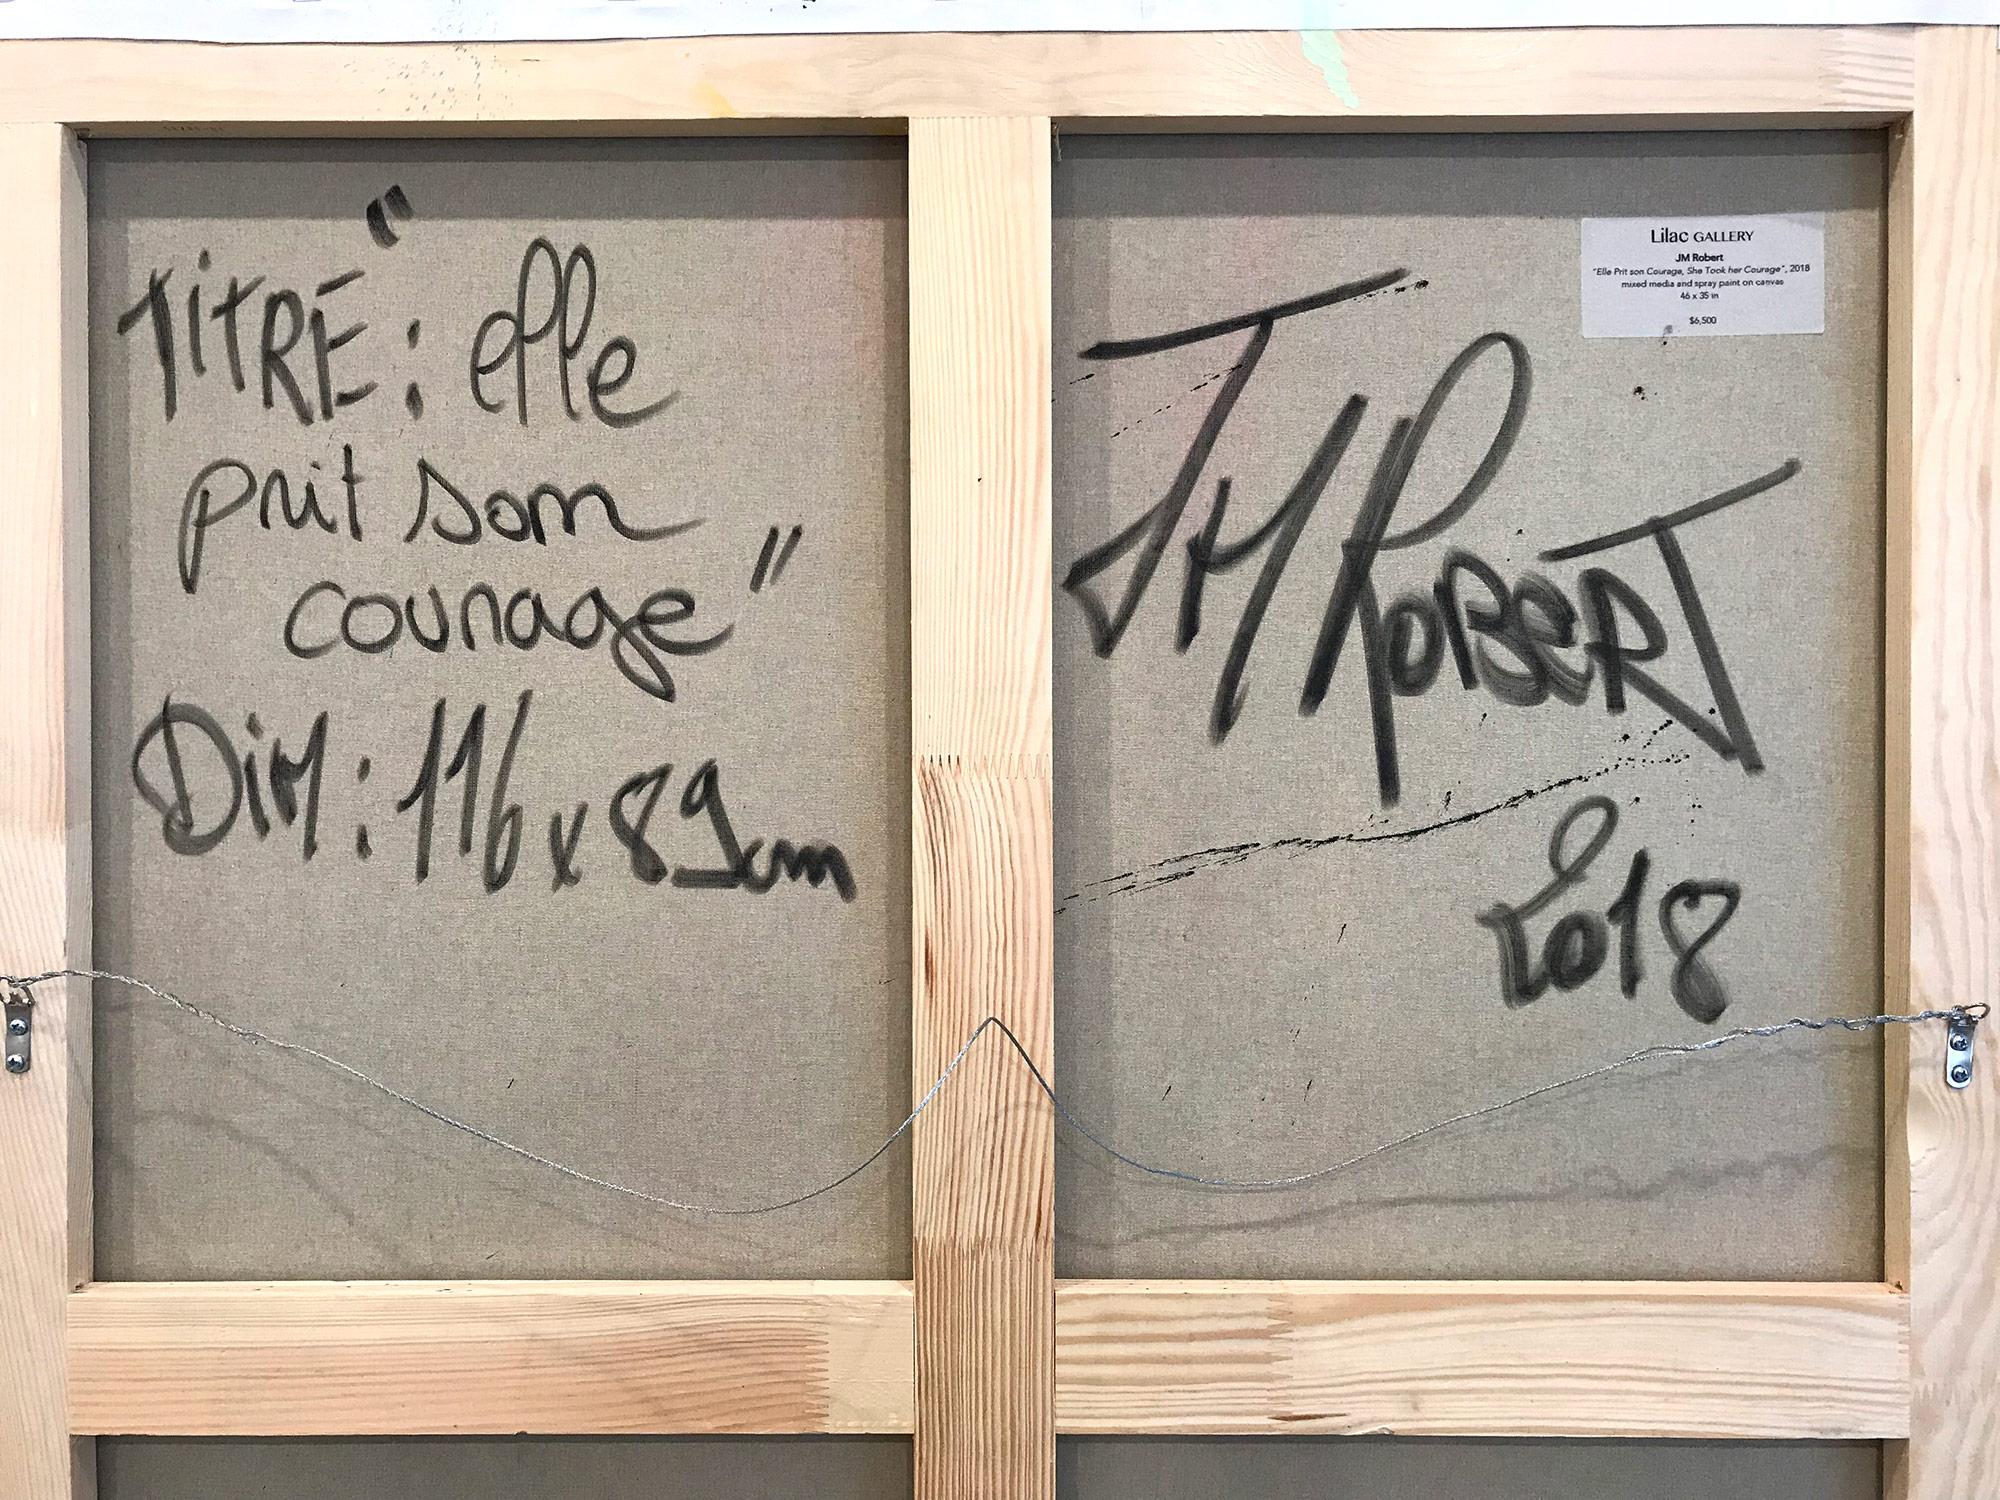 TITRE : "elle
prit son
courage"
DIM : 116 x 89cm
JM ROBERT
2018
Lilac GALLERY
JM Robert
"Elle Prit son Courage, She Took her Courage", 2018
mixed media and spray paint on canvas
46 x 35 in
$6,500